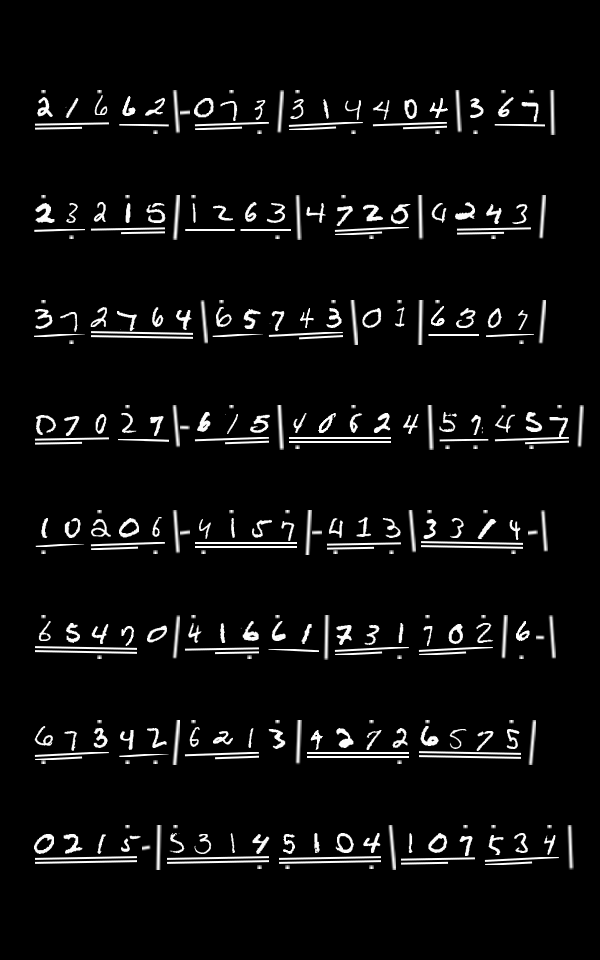 21662|-073|314404|367|
23215|1263|4725|4243|
372764|65743|01|6307|
07027|-615|40624|57457|
10206|-4157|-413|3314-|
65470|41661|731702|6-|
67342|6213|42726575|
0215-|53145104|107534|